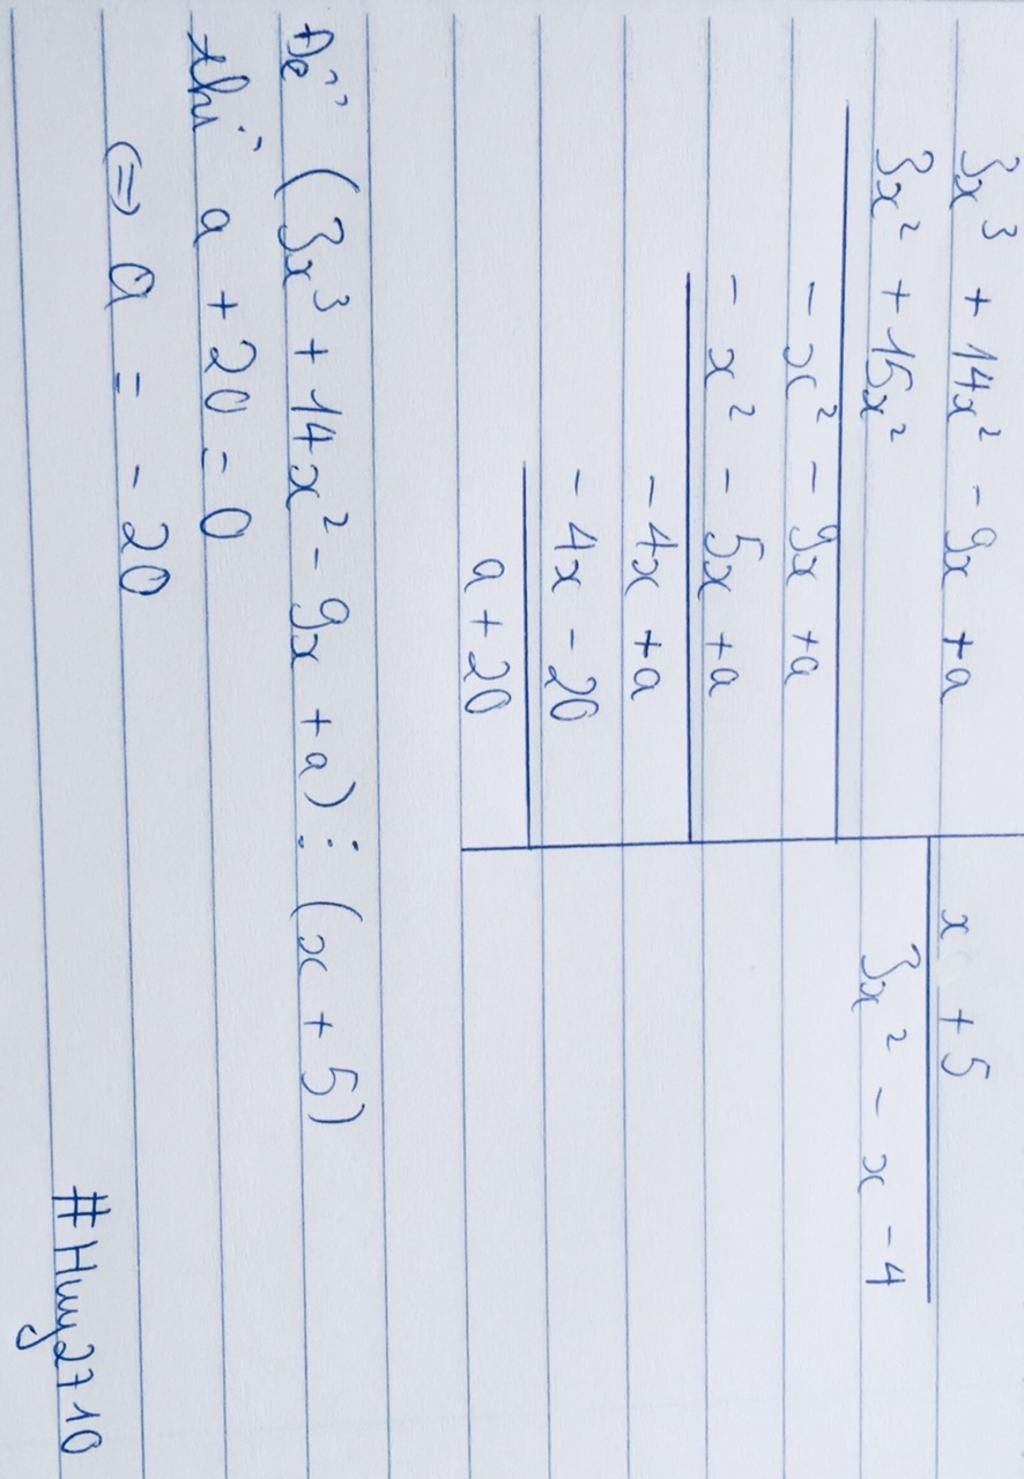 3x³ + 14x² - 9x + a
x + 5
3x² + 15x²
3x² - x - 4
- x² - 9x + a
- x² - 5x + a
- 4x + a
- 4x - 20
a + 20
Để (3x³ + 14x² - 9x + a) ⋮ (x + 5)
thì a + 20 = 0
⇔ a = - 20
#Huy2710